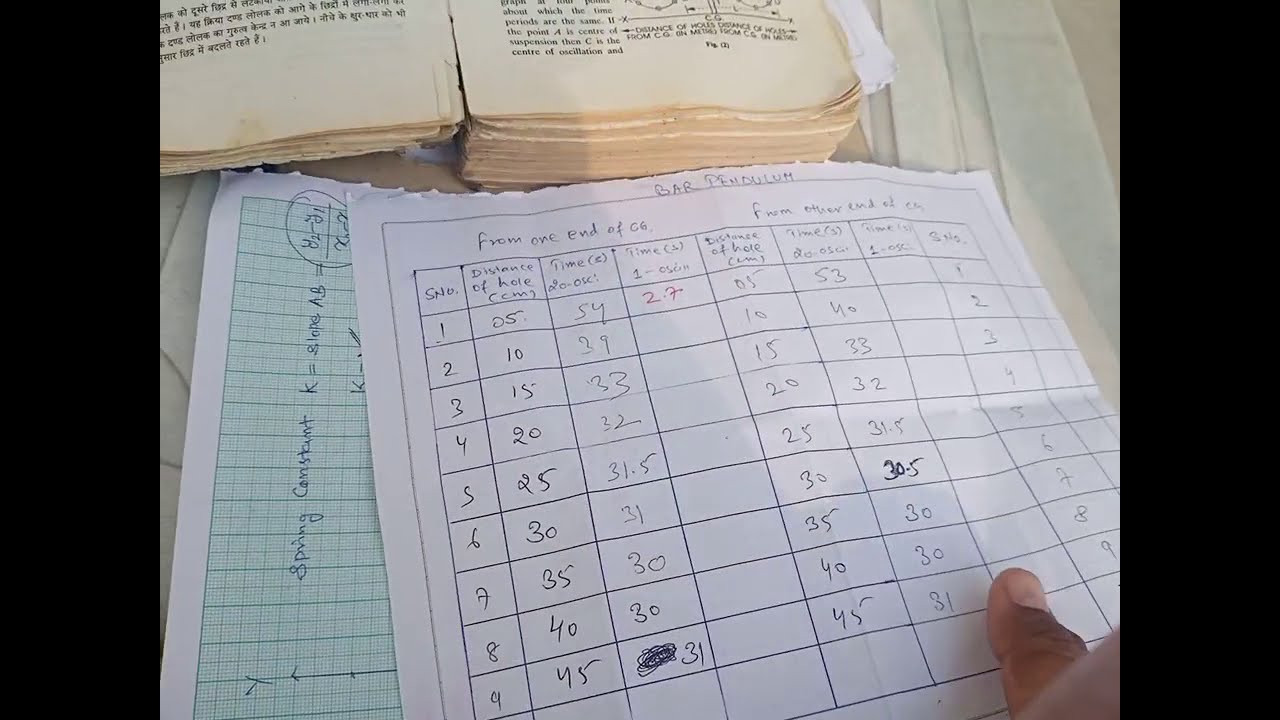 लोलक को दूसरे छिद्र से लटकाया
करते हैं। यह क्रिया दण्ड लोलक को आगे के छिद्रों में लगा-लगा कर
क दण्ड लोलक का गुरुत्व केन्द्र न आ जाये। नीचे के क्षुर-धार को भी
नुसार छिद्र में बदलते रहते हैं।
graph at four points
about which the time
periods are the same. If
the point A is centre of
suspension then C is the
centre of oscillation and
-X
C.G.
X
DISTANCE OF HOLES DISTANCE OF HOLES
FROM C.G. (IN METRE) FROM C.G. (IN METRE)
Fig. (2)
BAR PENDULUM
From one end of CG.
From other end of CG
SNo. Distance of hole (cm) Time(s) 20-osci. Time(s) 1-oscin Distance of hole (cm) Time(s) 20-osci. Time(s) 1-osci. S.No.
1 05. 54 2.7 05 53 1
2 10 39 10 40 2
3 15 33 15 33 3
4 20 32 20 32 4
5 25 31.5 25 31.5 5
6 30 31 30 30.5 6
7 35 30 35 30 7
8 40 30 40 30 8
9 45 31 45 31 9
Spring Constant K = Slope AB = y2-y1
K=
Y